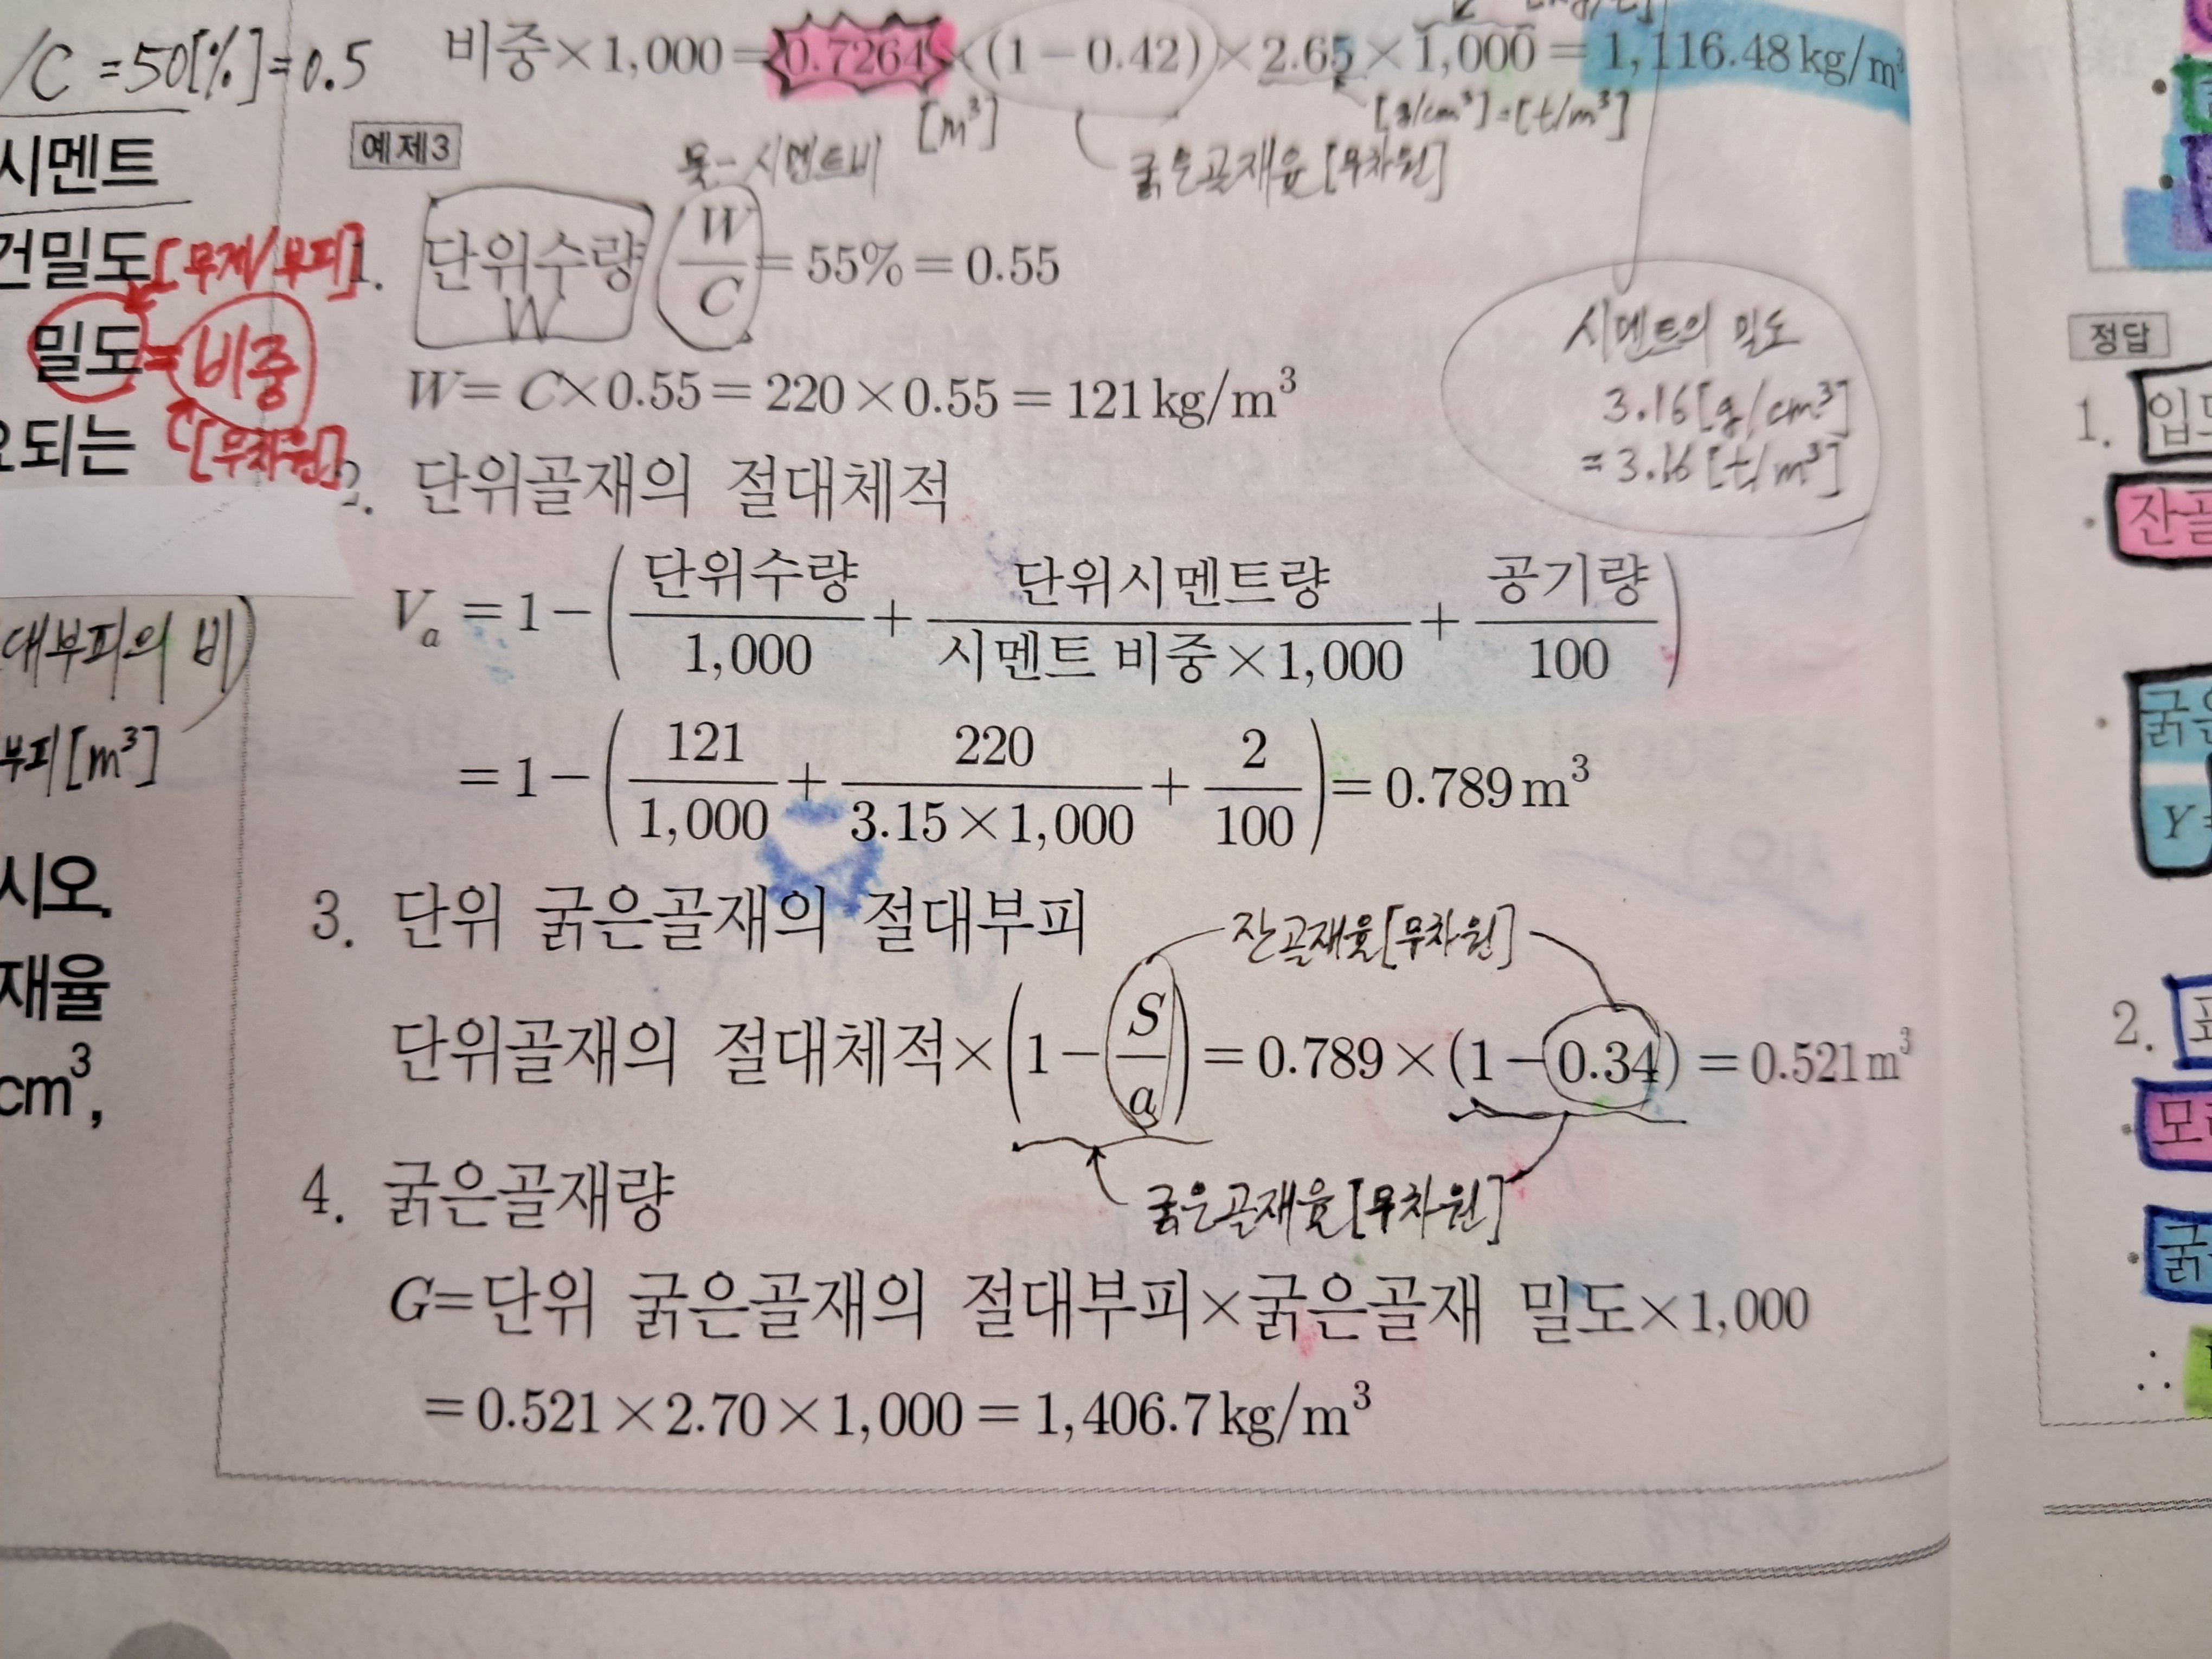 /C = 50[%] = 0.5
비중×1,000 = 0.7264×(1-0.42)×2.65×1,000 = 1,116.48kg/m³
[m³]
[g/cm³] = [t/m³]
굵은골재율[무차원]
시멘트
예제3
물-시멘트비
건밀도[무게/부피]
밀도=비중
[무차원]
요되는
1. 단위수량 W/C = 55% = 0.55
W
W = C×0.55 = 220×0.55 = 121kg/m³
시멘트의 밀도
3.16[g/cm³]
= 3.16[t/m³]
2. 단위골재의 절대체적
Va = 1-(단위수량/1,000 + 단위시멘트량/시멘트 비중×1,000 + 공기량/100)
= 1-(121/1,000 + 220/3.15×1,000 + 2/100) = 0.789m³
대부피의 비)
부피[m³]
시오.
재율
cm³,
3. 단위 굵은골재의 절대부피
잔골재율[무차원]
단위골재의 절대체적×(1-S/a) = 0.789×(1-0.34) = 0.521m³
굵은골재율[무차원]
4. 굵은골재량
G=단위 굵은골재의 절대부피×굵은골재 밀도×1,000
= 0.521×2.70×1,000 = 1,406.7kg/m³
정답
1.
잔골
굵은
Y=
2.
모래
굵
∴